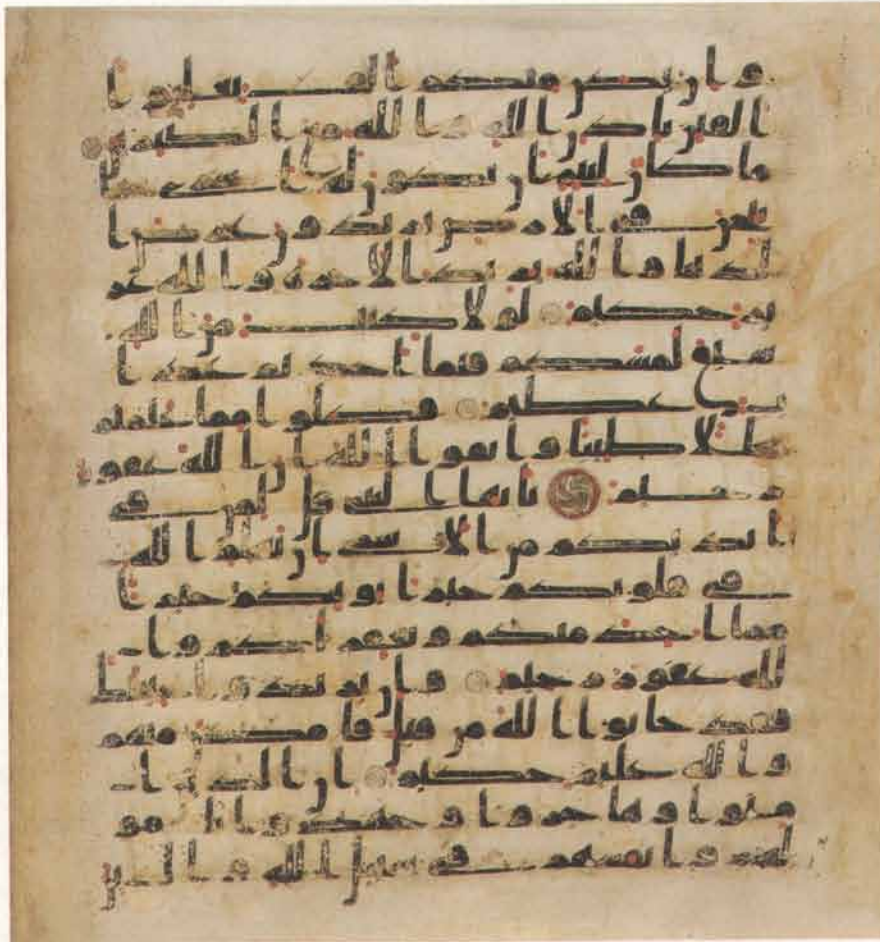 وان يكن منكم الف يغلبوا
الفين باذن الله والله مع الصبرين
ما كان لنبي ان يكون له اسرى حتى
يثخن في الارض تريدون عرض ا
لدنيا والله يريد الاخرة والله عز
يز حكيم لولا كتب من الله
سبق لمسكم فيما اخذتم عذا
ب عظيم فكلوا مما غنمتم
حللا طيبا واتقوا الله ان الله غفو
ر رحيم يايها النبي قل لمن في
ايديكم من الاسرى ان يعلم الله
في قلوبكم خيرا يوتكم خيرا
مما اخذ منكم ويغفر لكم وا
لله غفور رحيم وان يريدوا خيانتك
فقد خانوا الله من قبل فامكن منهم
والله عليم حكيم ان الذين ا
منوا وهاجروا وجهدوا بامو
لهم وانفسهم في سبيل الله والذين